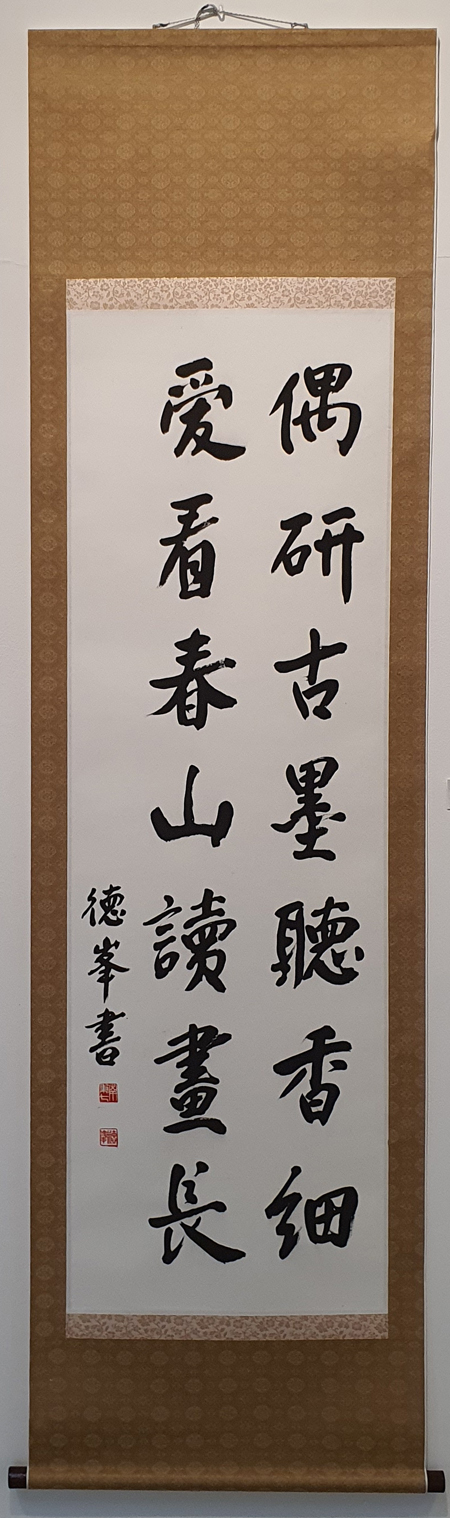 偶研古墨聽香細
爱看春山讀畫長
德峯書